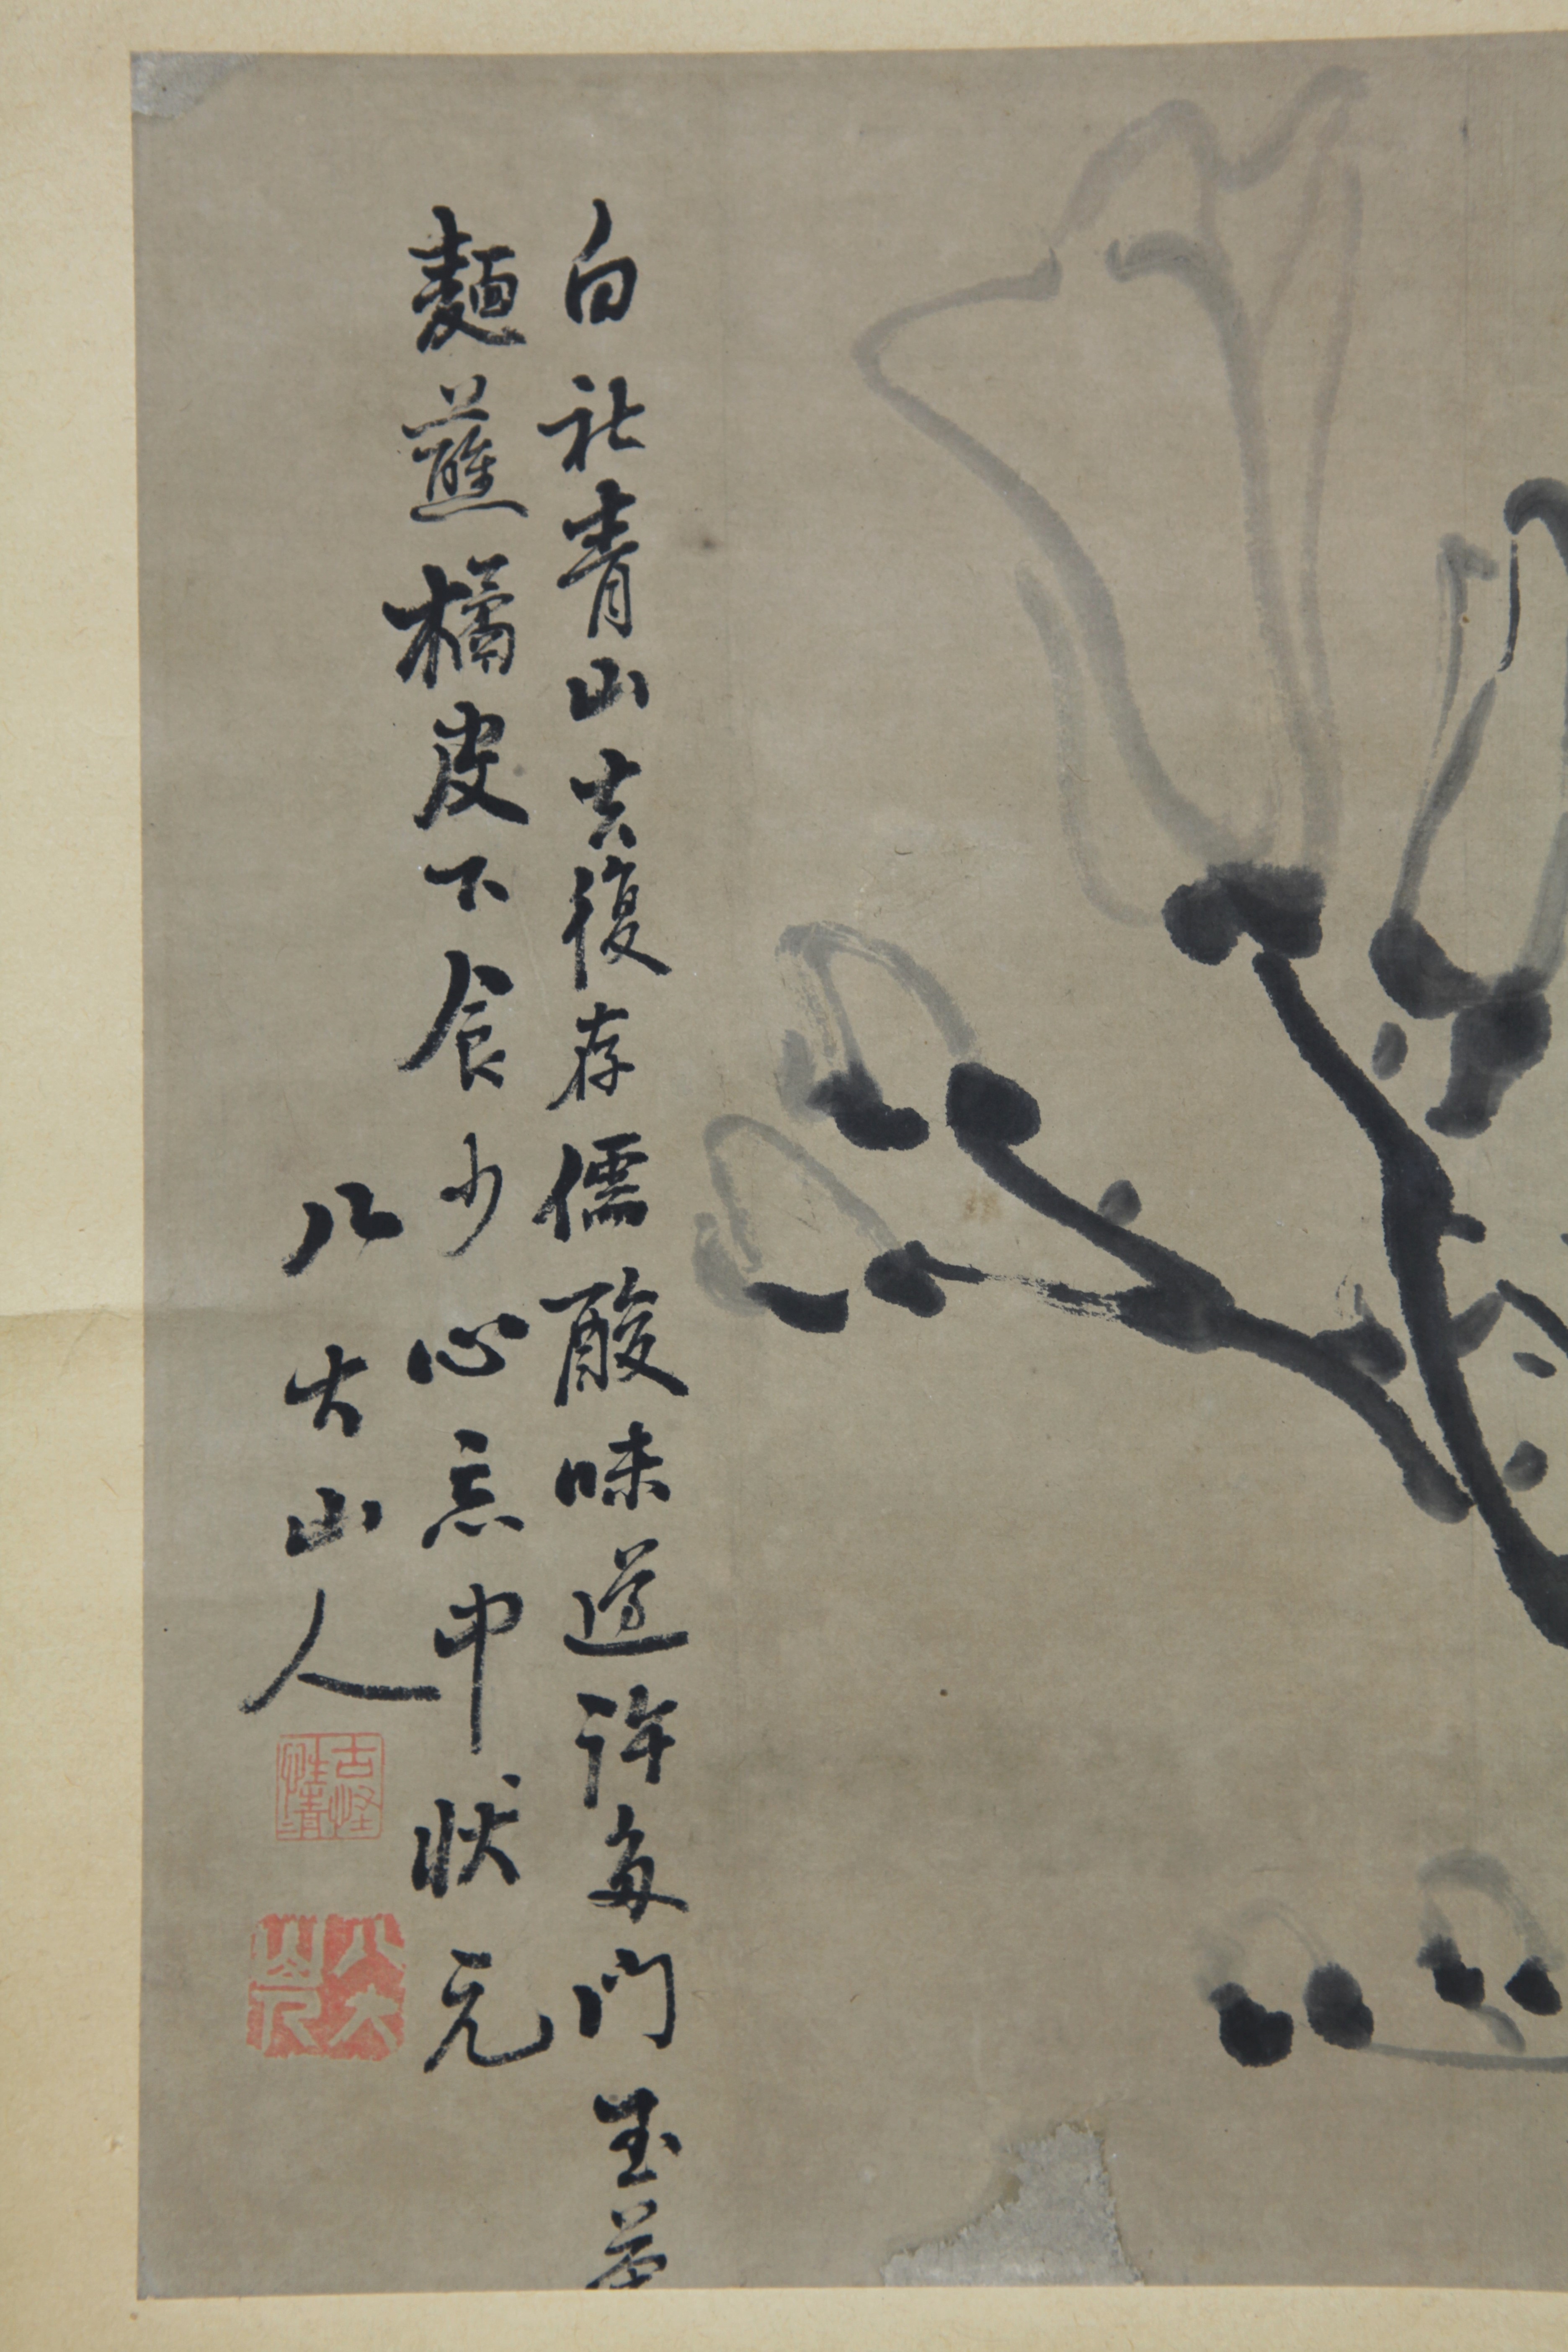 白社青山去復存儒酸味道許多門玉
麵蘸橘皮下食少心忘中狀元
八大山人
八大山人